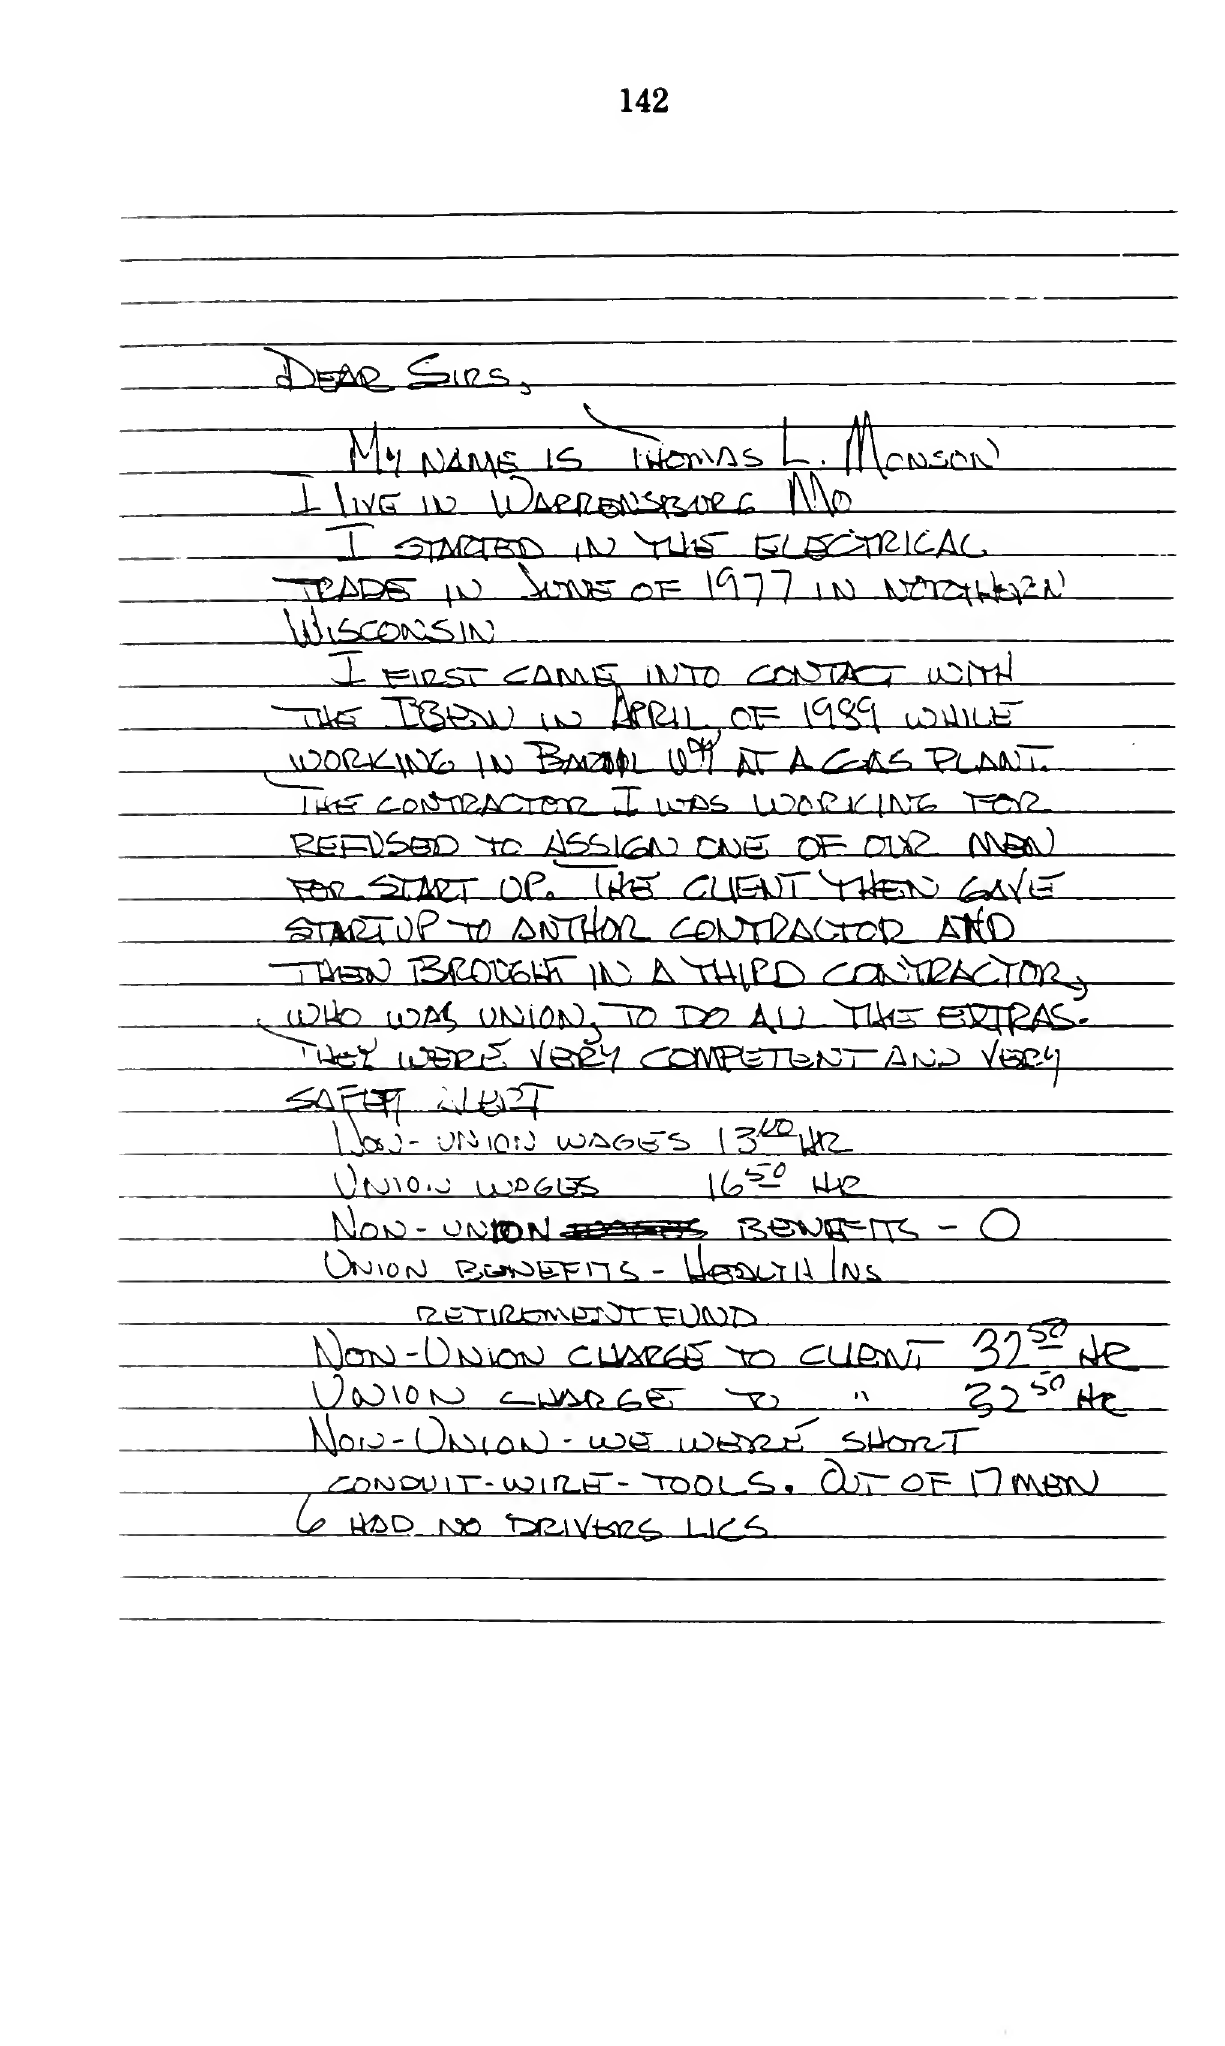 142
DEAR SIRS,
MY NAME IS THOMAS L. MONSON
I LIVE IN WARRENSBURG MO
I STARTED IN THE ELECTRICAL
TRADE IN JUNE OF 1977 IN NORTHERN
WISCONSIN
I FIRST CAME INTO CONTACT WITH
THE IBEW IN APRIL OF 1989 WHILE
WORKING IN WY AT A GAS PLANT.
THE CONTRACTOR I WAS WORKING FOR
REFUSED TO ASSIGN ONE OF OUR MEN
FOR START UP. THE CLIENT THEN GAVE
STARTUP TO ANTHOR CONTRACTOR AND
THEN BROUGHT IN A THIRD CONTRACTOR,
WHO WAS UNION, TO DO ALL THE EXTRAS.
THEY WERE VERY COMPETENT AND VERY
SAFETY ALERT
NON-UNION WAGES 13 00 HR
UNION WAGES 16 50 HR
NON-UNION BENEFITS - 0
UNION BENEFITS - HEALTH INS
RETIREMENT FUND
NON-UNION CHARGE TO CLIENT 32 50 HR
UNION CHARGE TO " 32 50 HR
NON-UNION - WE WERE SHORT
CONDUIT-WIRE-TOOLS. OUT OF 17 MEN
6 HAD NO DRIVERS LICS